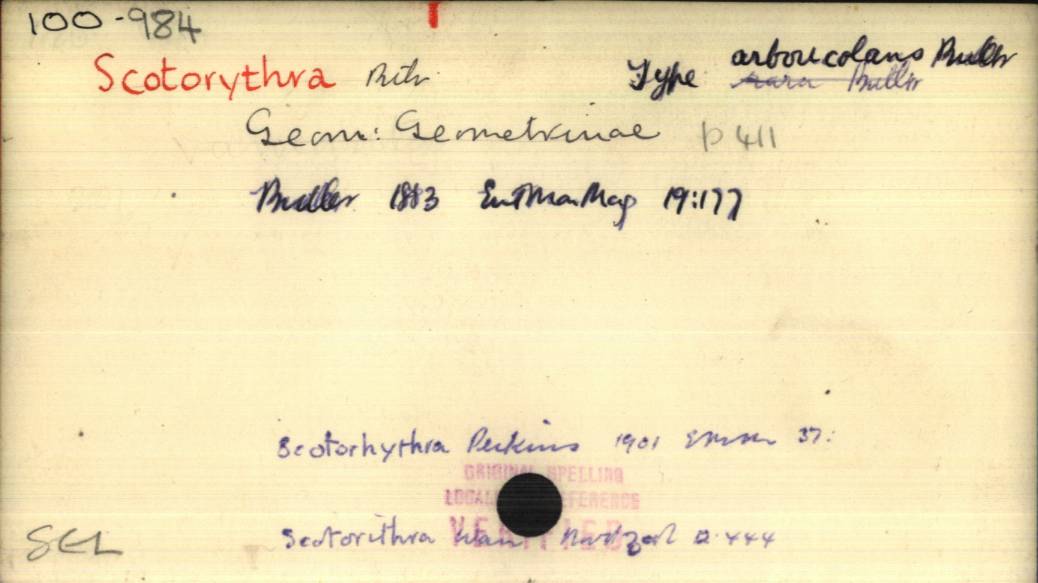 100-984
Scotorythra Butl Type arboricolans Butler
rara Butler
Geom: Geometrinae p 411
Butler 1883 Ent Mon Mag 19:177
Scotorhythra Perkins 1901 EMM 37:
ORIGINAL SPELLING
LOCAL REFERENCE
VERIFIED
Scotorithra 2.444
SCL